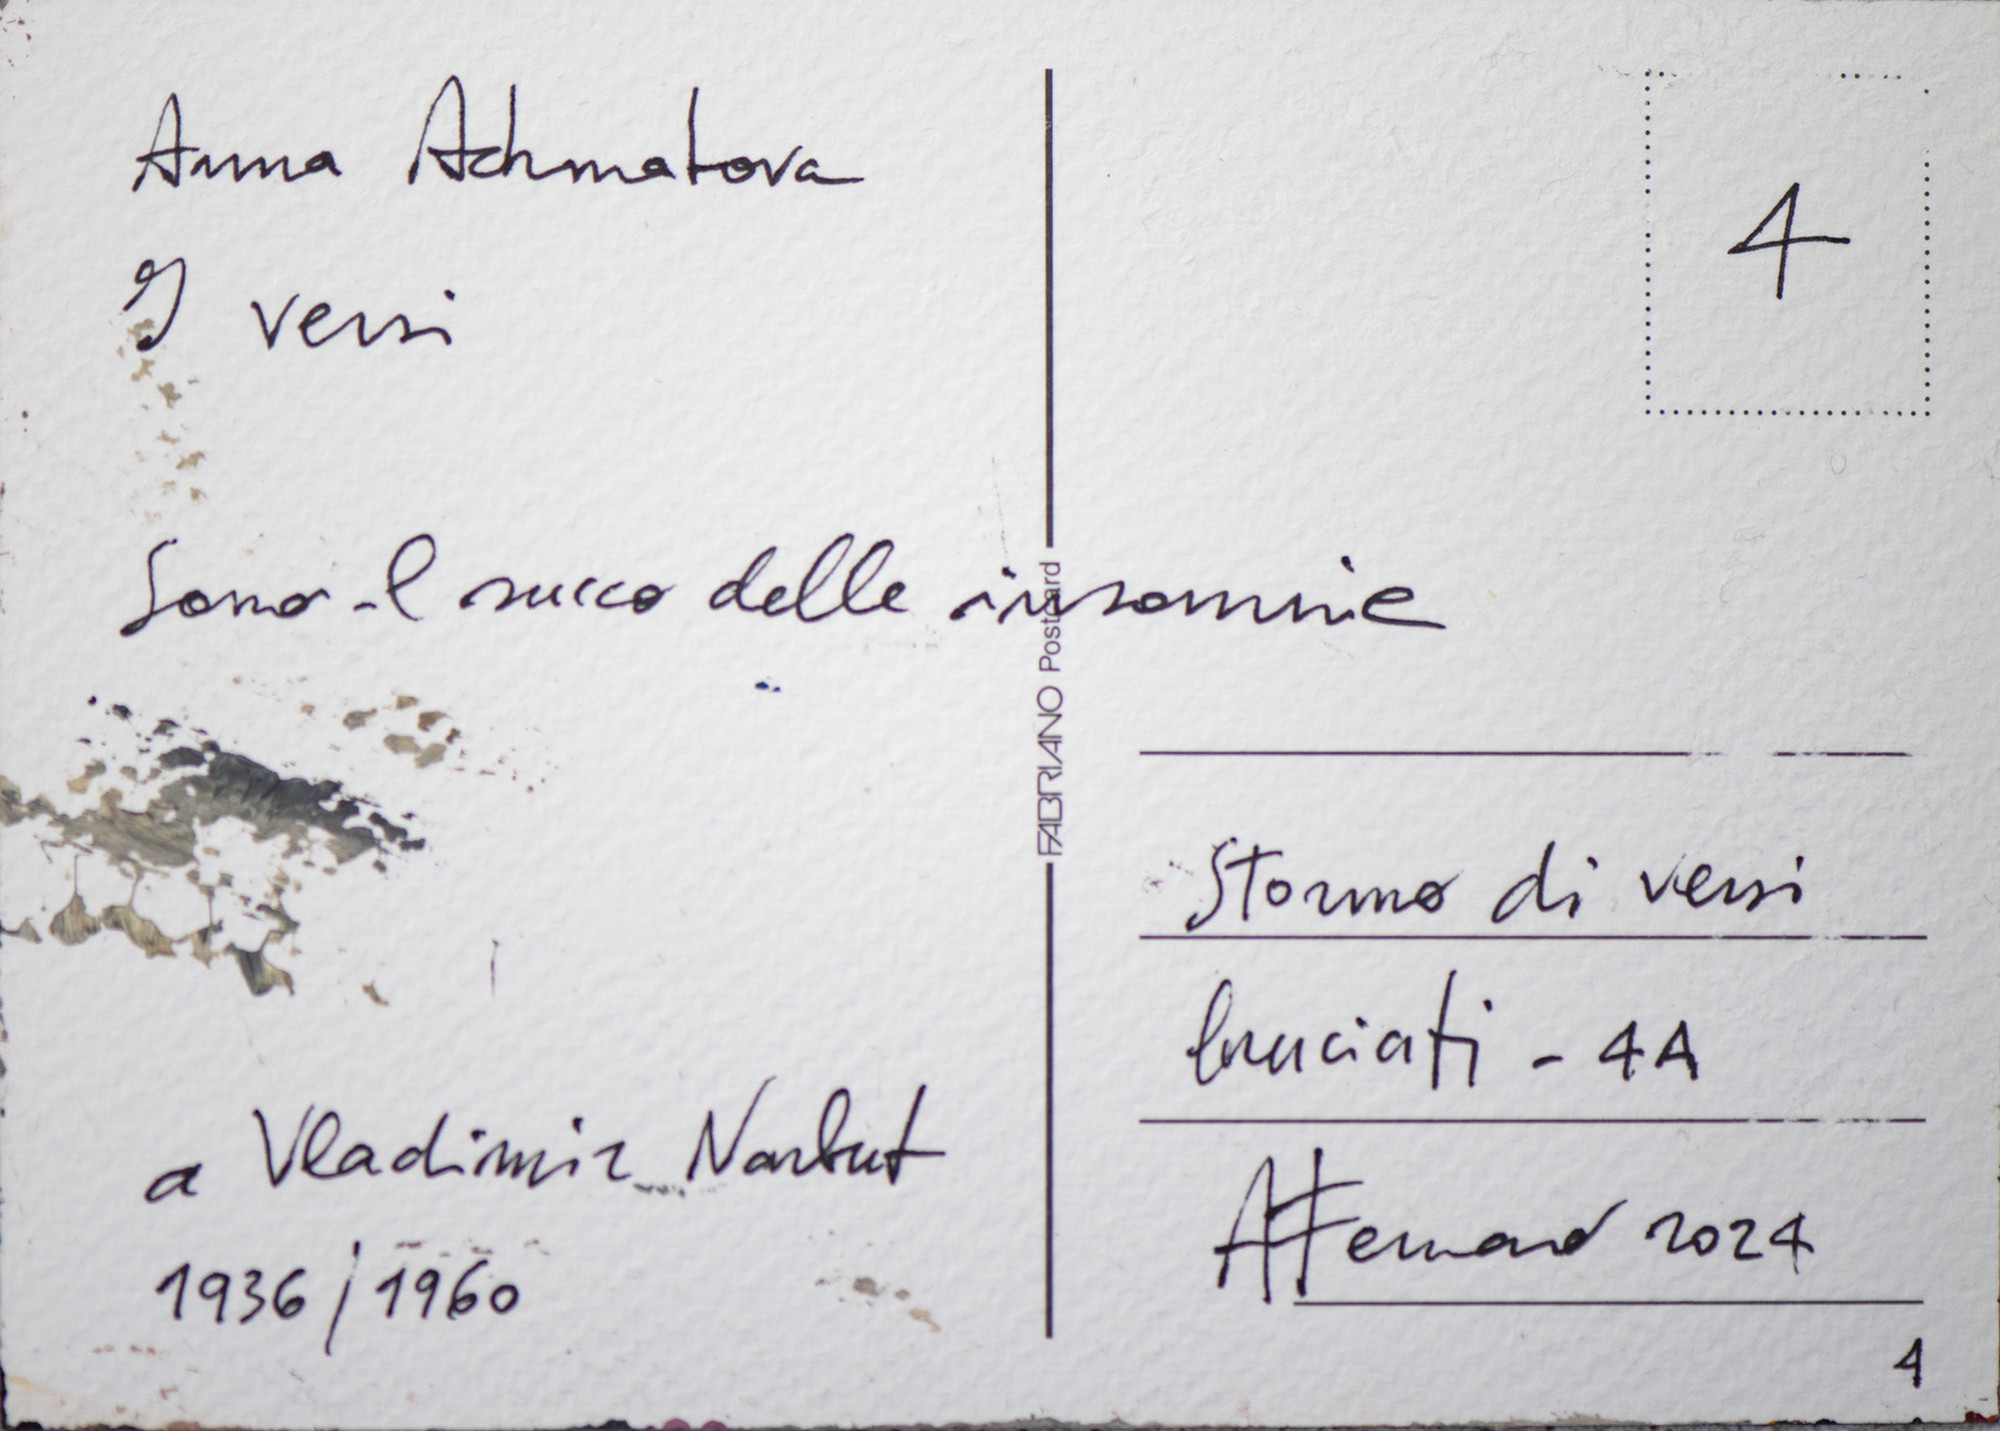 Anna Achmatova
I versi
Sono il succo delle insonnie
a Vladimir Narbut
1936/1960
FABRIANO Postcard
4
Stormo di versi
bruciati - 4A
2024
4